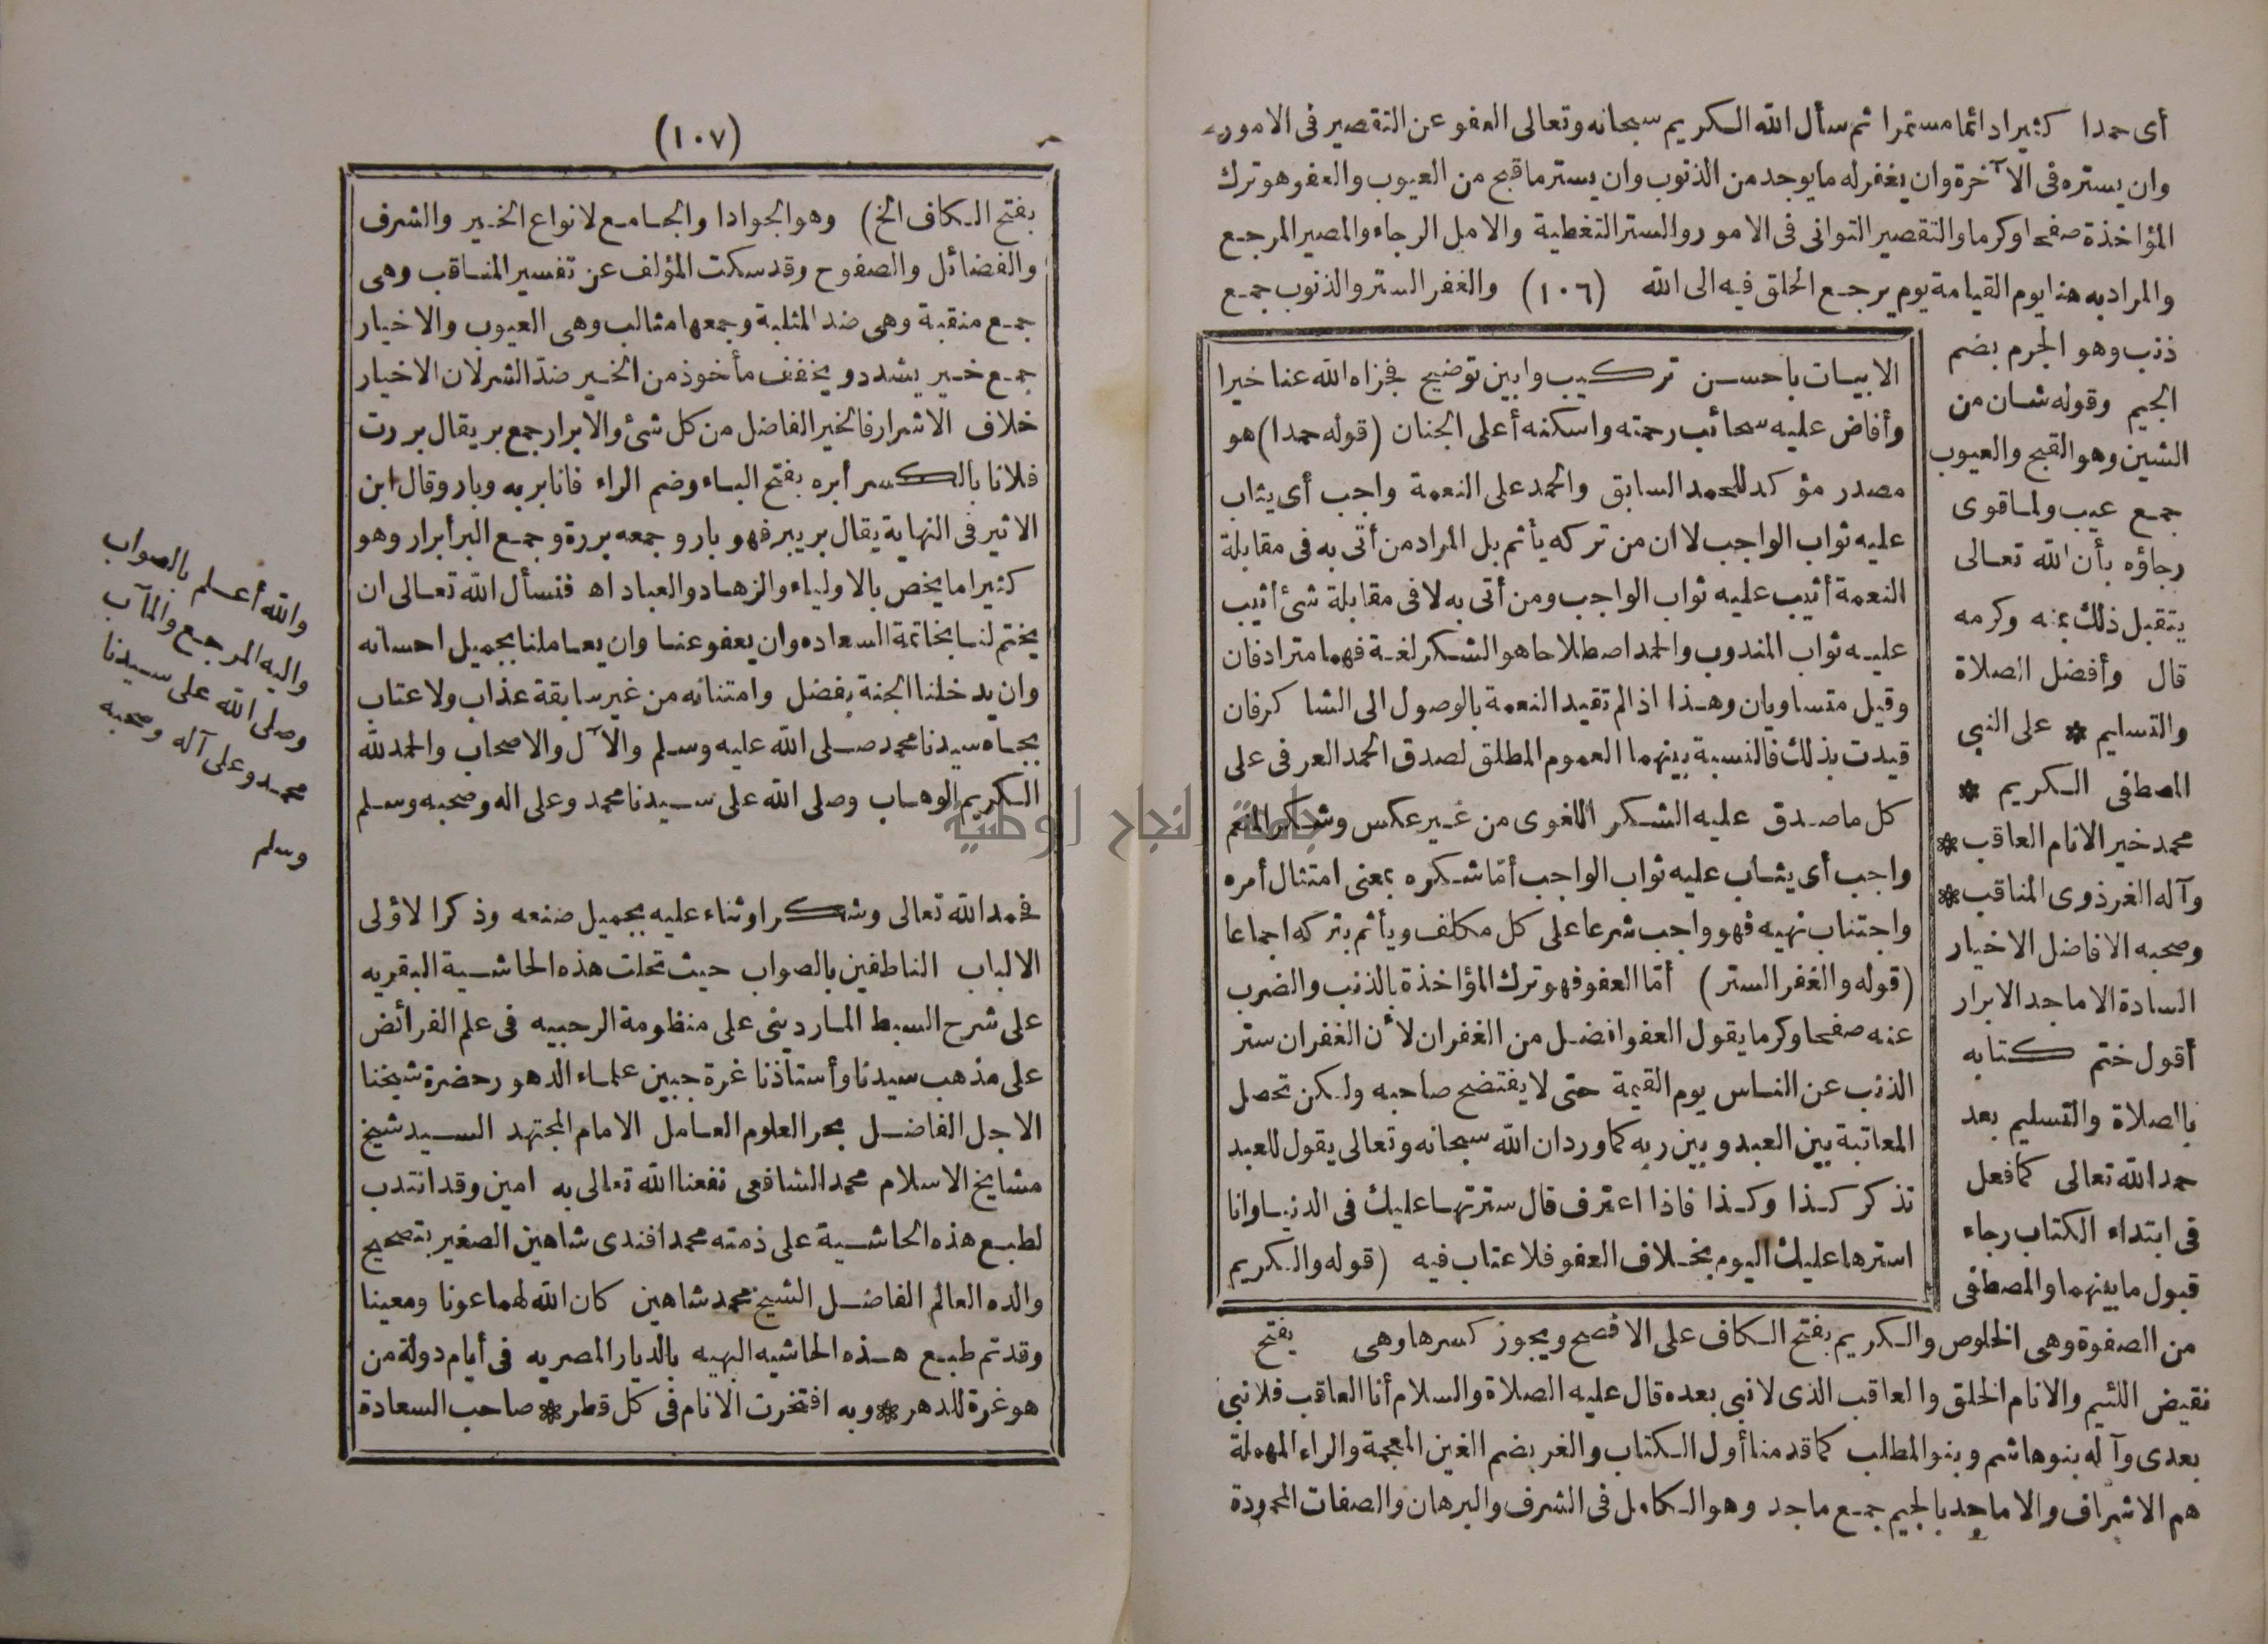 أى حمدا كثيرا دائما مستمرا ثم سأل الله الكريم سبحانه وتعالى العفو عن التقصير فى الامور
وان يستره فى الآخرة وان يغفر له ما يوجد من الذنوب وان يستر ما قبح من العيوب والعفو هو ترك
المؤاخذة صفحا وكرما والتقصير التوانى فى الامور والستر التغطية والامل الرجاء والمصير المرجع
والمراد به هنا يوم القيامة يوم يرجع الخلق فيه الى الله (١٠٦) والغفر الستر والذنوب جمع
ذنب وهو الجرم بضم
الجيم وقوله شان من
الشين وهو القبح والعيوب
جمع عيب ولما قوى
رجاؤه بأن الله تعالى
يتقبل ذلك بمنه وكرمه
قال وأفضل الصلاة
والتسليم * على النبى
المصطفى الكريم *
محمد خير الانام العاقب *
وآله الغر ذوى المناقب *
وصحبه الافاضل الاخيار
السادة الاماجد الابرار
أقول ختم كتابه
بالصلاة والتسليم بعد
حمد الله تعالى كما فعل
فى ابتداء الكتاب رجاء
قبول ما بينهما والمصطفى
من الصفوة وهى الخلوص والكريم بفتح الكاف على الافصح ويجوز كسرها وهى
نقيض اللئيم والانام الخلق والعاقب الذى لا نبى بعده قال عليه الصلاة والسلام أنا العاقب فلا نبى
بعدى وآله بنو هاشم وبنو المطلب كما قدمنا أول الكتاب والغر بضم الغين المعجمة والراء المهملة
هم الاشراف والاماجد بالجيم جمع ماجد وهو الكامل فى الشرف والبرهان والصفات المحمودة
الابيات باحسن تركيب وابين توضيح فجزاه الله عنا خيرا
وأفاض عليه سحائب رحمته واسكنه أعلى الجنان (قوله حمدا) هو
مصدر مؤكد للحمد السابق والحمد على النعمة واجب أى يثاب
عليه ثواب الواجب لا ان من تركه يأثم بل المراد من أتى به فى مقابلة
النعمة أثيب عليه ثواب الواجب ومن أتى به لا فى مقابلة شئ أثيب
عليه ثواب المندوب والحمد اصطلاحا هو الشكر لغة فهما مترادفان
وقيل متساويان وهذا اذا لم تقيد النعمة بالوصول الى الشاكر فان
قيدت بذلك فالنسبة بينهما العموم المطلق لصدق الحمد العرفى على
كل ما صدق عليه الشكر اللغوى من غير عكس وشكر المنعم
واجب أى يثاب عليه ثواب الواجب أمّا شكره بمعنى امتثال أمره
واجتناب نهيه فهو واجب شرعا على كل مكلف ويأثم بتركه اجماعا
(قوله والغفر الستر) أمّا العفو فهو ترك المؤاخذة بالذنب والضرب
عنه صفحا وكرما يقول العفو افضل من الغفران لأن الغفران ستر
الذنب عن الناس يوم القيمة حتى لا يفتضح صاحبه ولكن تحصل
المعاتبة بين العبد وبين ربه كما ورد ان الله سبحانه وتعالى يقول للعبد
تذكر كذا وكذا فاذا اعترف قال سترتها عليك فى الدنيا وانا
استرها عليك اليوم بخلاف العفو فلا عتاب فيه (قوله والكريم
بفتح
(١٠٧)
بفتح الكاف الخ) وهو الجواد او الجامع لانواع الخير والشرف
والفضائل والصفوح وقد سكت المؤلف عن تفسير المناقب وهى
جمع منقبة وهى ضد المثلبة وجمعها مثالب وهى العيوب والاخيار
جمع خير يشدد ويخفف مأخوذ من الخير ضدّ الشر لان الاخيار
خلاف الاشرار فالخير الفاضل من كل شئ والابرار جمع بر يقال بررت
فلانا بالكسر أبره بفتح الباء وضم الراء فانا بر به وبار وقال ابن
الاثير فى النهاية يقال بر يبر فهو بار وجمعه بررة وجمع البر أبرار وهو
كثيرا ما يخص بالاولياء والزهاد والعباد اه فنسأل الله تعالى ان
يختم لنا بخاتمة السعاده وان يعفو عنا وان يعاملنا بجميل احسانه
وان يدخلنا الجنة بفضل وامتنانه من غير سابقة عذاب ولا عتاب
بجاه سيدنا محمد صلى الله عليه وسلم والآل والاصحاب والحمد لله
الكريم الوهاب وصلى الله على سيدنا محمد وعلى اله وصحبه وسلم
فحمد الله تعالى وشكرا وثناء عليه بجميل صنعه وذكرا لاولى
الالباب الناطقين بالصواب حيث تحلت هذه الحاشية البقريه
على شرح السبط الماردينى على منظومة الرحبيه فى علم الفرائض
على مذهب سيدنا وأستاذنا غرة جبين علماء الدهور حضرة شيخنا
الاجل الفاضل بحر العلوم العامل الامام المجتهد السيد شيخ
مشايخ الاسلام محمد الشافعى نفعنا الله تعالى به امين وقد انتدب
لطبع هذه الحاشية على ذمته محمد افندى شاهين الصغير بتصحيح
والده العالم الفاضل الشيخ محمد شاهين كان الله لهما عونا ومعينا
وقد تم طبع هذه الحاشيه البهيه بالديار المصريه فى أيام دولة من
هو غرة للدهر * وبه افتخرت الانام فى كل قطر * صاحب السعادة
والله أعلم بالصواب
واليه المرجع والمآب
وصلى الله على سيدنا
محمد وعلى آله وصحبه
وسلم
جامعة النجاح الوطنية